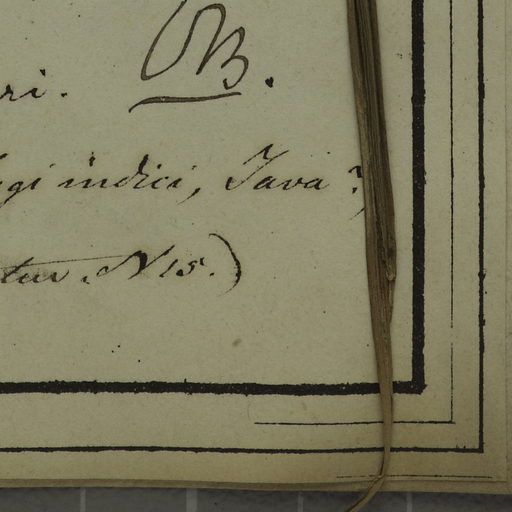 ri. B.
gi indici, Java?
tur. N 15.)